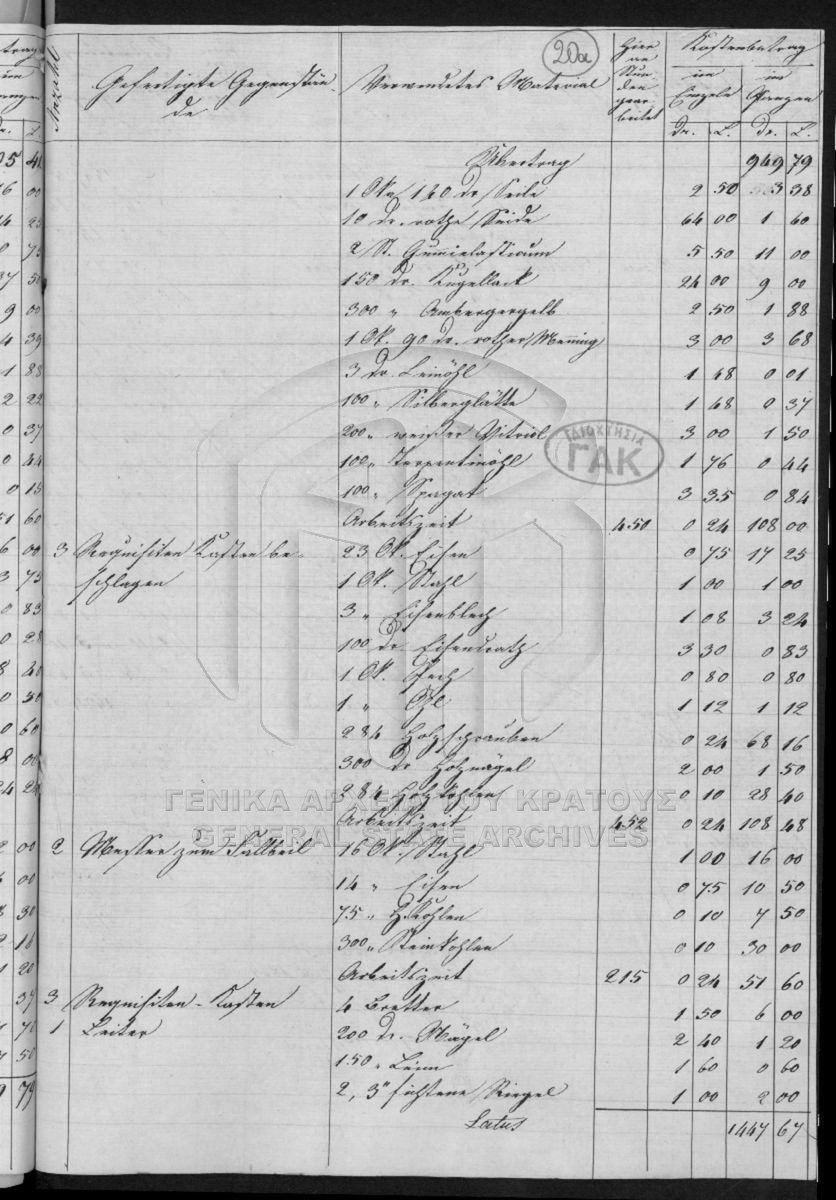 20a
Anzahl
Gefertigte Gegenstän-
de
Verwendetes Material
Hier
an
Stun
den
gear
beitet
Kostenbetrag
im
Einzeln
im
Ganzen
Dr. L. Dr. L.
Übertrag 949 79
1 Oka 120 dr. Seile 2 50 3 38
10 dr. rothe Seide 64 00 1 60
2 St. Gummielasticum 5 50 11 00
150 dr. Kugellack 24 00 9 00
300 " Ambergergelb 2 50 1 88
1 Ok. 90 dr. rother Menning 3 00 3 68
3 dr. Leinöhl 1 48 0 01
100 " Silberglätte 1 48 0 37
200 " weisser Vitriol 3 00 1 50
100 " Terpentinöhl 1 76 0 44
100 " Spagat 3 35 0 84
Arbeitszeit 450 0 24 108 00
3 Requisiten Kasten be- 23 Ok. Eisen 0 75 17 25
schlagen 1 Ok. Stahl 1 00 1 00
3 " Eisenblech 1 08 3 24
100 dr. Eisendrath 3 30 0 83
1 Ok. Pech 0 80 0 80
1 " Öhl 1 12 1 12
284 Holzschrauben 0 24 68 16
300 dr. Holznägel 2 00 1 50
284 Holzkohlen 0 10 28 40
Arbeitszeit 452 0 24 108 48
2 Messer zum Fallbeil 16 Ok. Stahl 1 00 16 00
14 " Eisen 0 75 10 50
75 " H. Kohlen 0 10 7 50
300 " Steinkohlen 0 10 30 00
Arbeitszeit 215 0 24 51 60
3 Requisiten-Kasten 4 Bretter 1 50 6 00
1 Leiter 200 dr. Nägel 2 40 1 20
150 " Leim 1 60 0 60
2, 3" fichtene Riegel 1 00 2 00
Latus 1447 67
ΙΔΙΟΚΤΗΣΙΑ
ΓΑΚ
ΓΕΝΙΚΑ ΑΡΧΕΙΑ ΤΟΥ ΚΡΑΤΟΥΣ
GENERAL STATE ARCHIVES